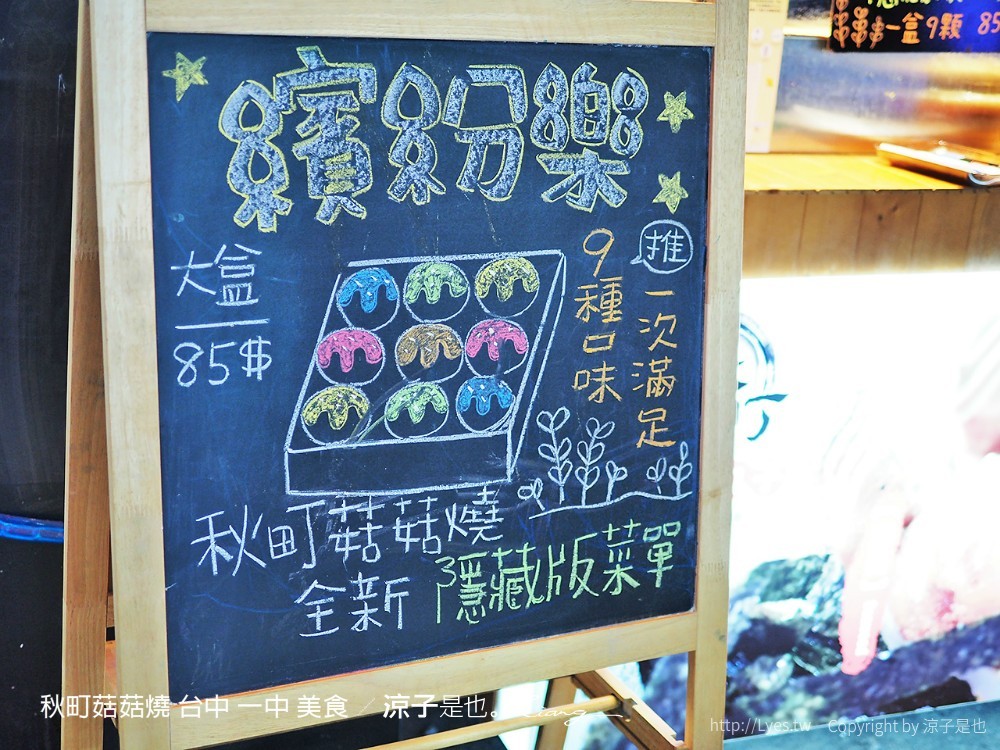 繽紛樂
大盒
85$
9種口味
推
一次滿足
秋町菇菇燒
全新 隱藏版菜單
一盒9顆 85
秋町菇菇燒 台中 一中 美食 / 涼子是也。
http://Lyes.tw Copyright by 涼子是也